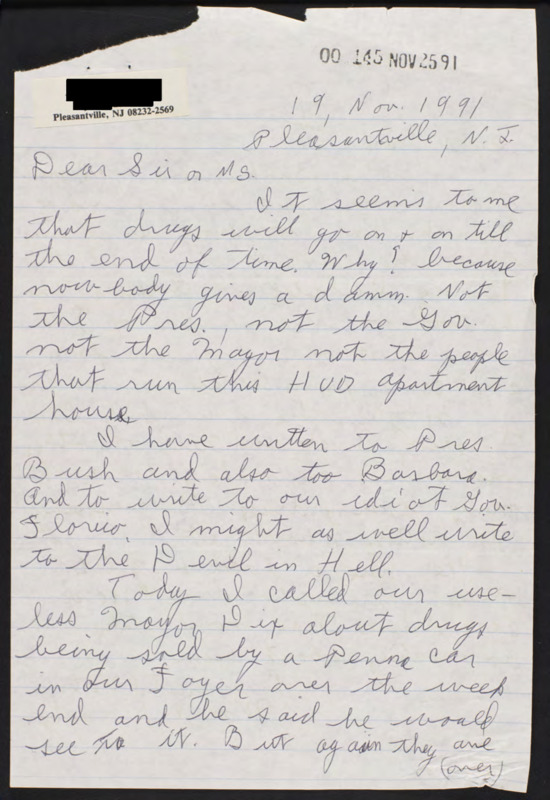 00 145 NOV 25 91
Pleasantville, NJ 08232-2569
19, Nov. 1991
Pleasantville, N.J.
Dear Sir or Ms.
It seems to me
that drugs will go on + on till
the end of time. Why? because
now-body gives a damm. Not
the Pres., not the Gov.
not the Mayor not the people
that run this HUD apartment
house
I have written to Pres.
Bush and also too Barbara.
And to write to our idiot Gov.
Florio, I might as well write
to the Devil in Hell.
Today I called our use-
less Mayor Dix about drugs
being sold by a Penna car
in our Foyer over the week
end and he said he would
see to it. But again they are
(over)